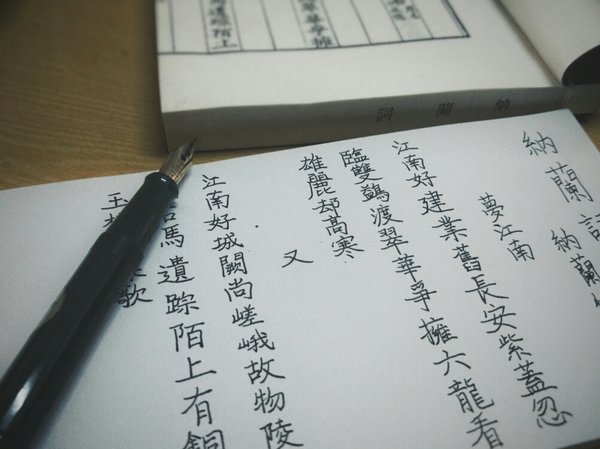 遺踪陌上
翠華爭擁
納蘭詞
納蘭詞 納蘭
夢江南
江南好建業舊長安紫蓋忽
臨雙鷁渡翠華爭擁六龍看
雄麗却高寒
又
江南好城闕尚嵯峨故物陵
馬遺踪陌上有銅
玉
歌